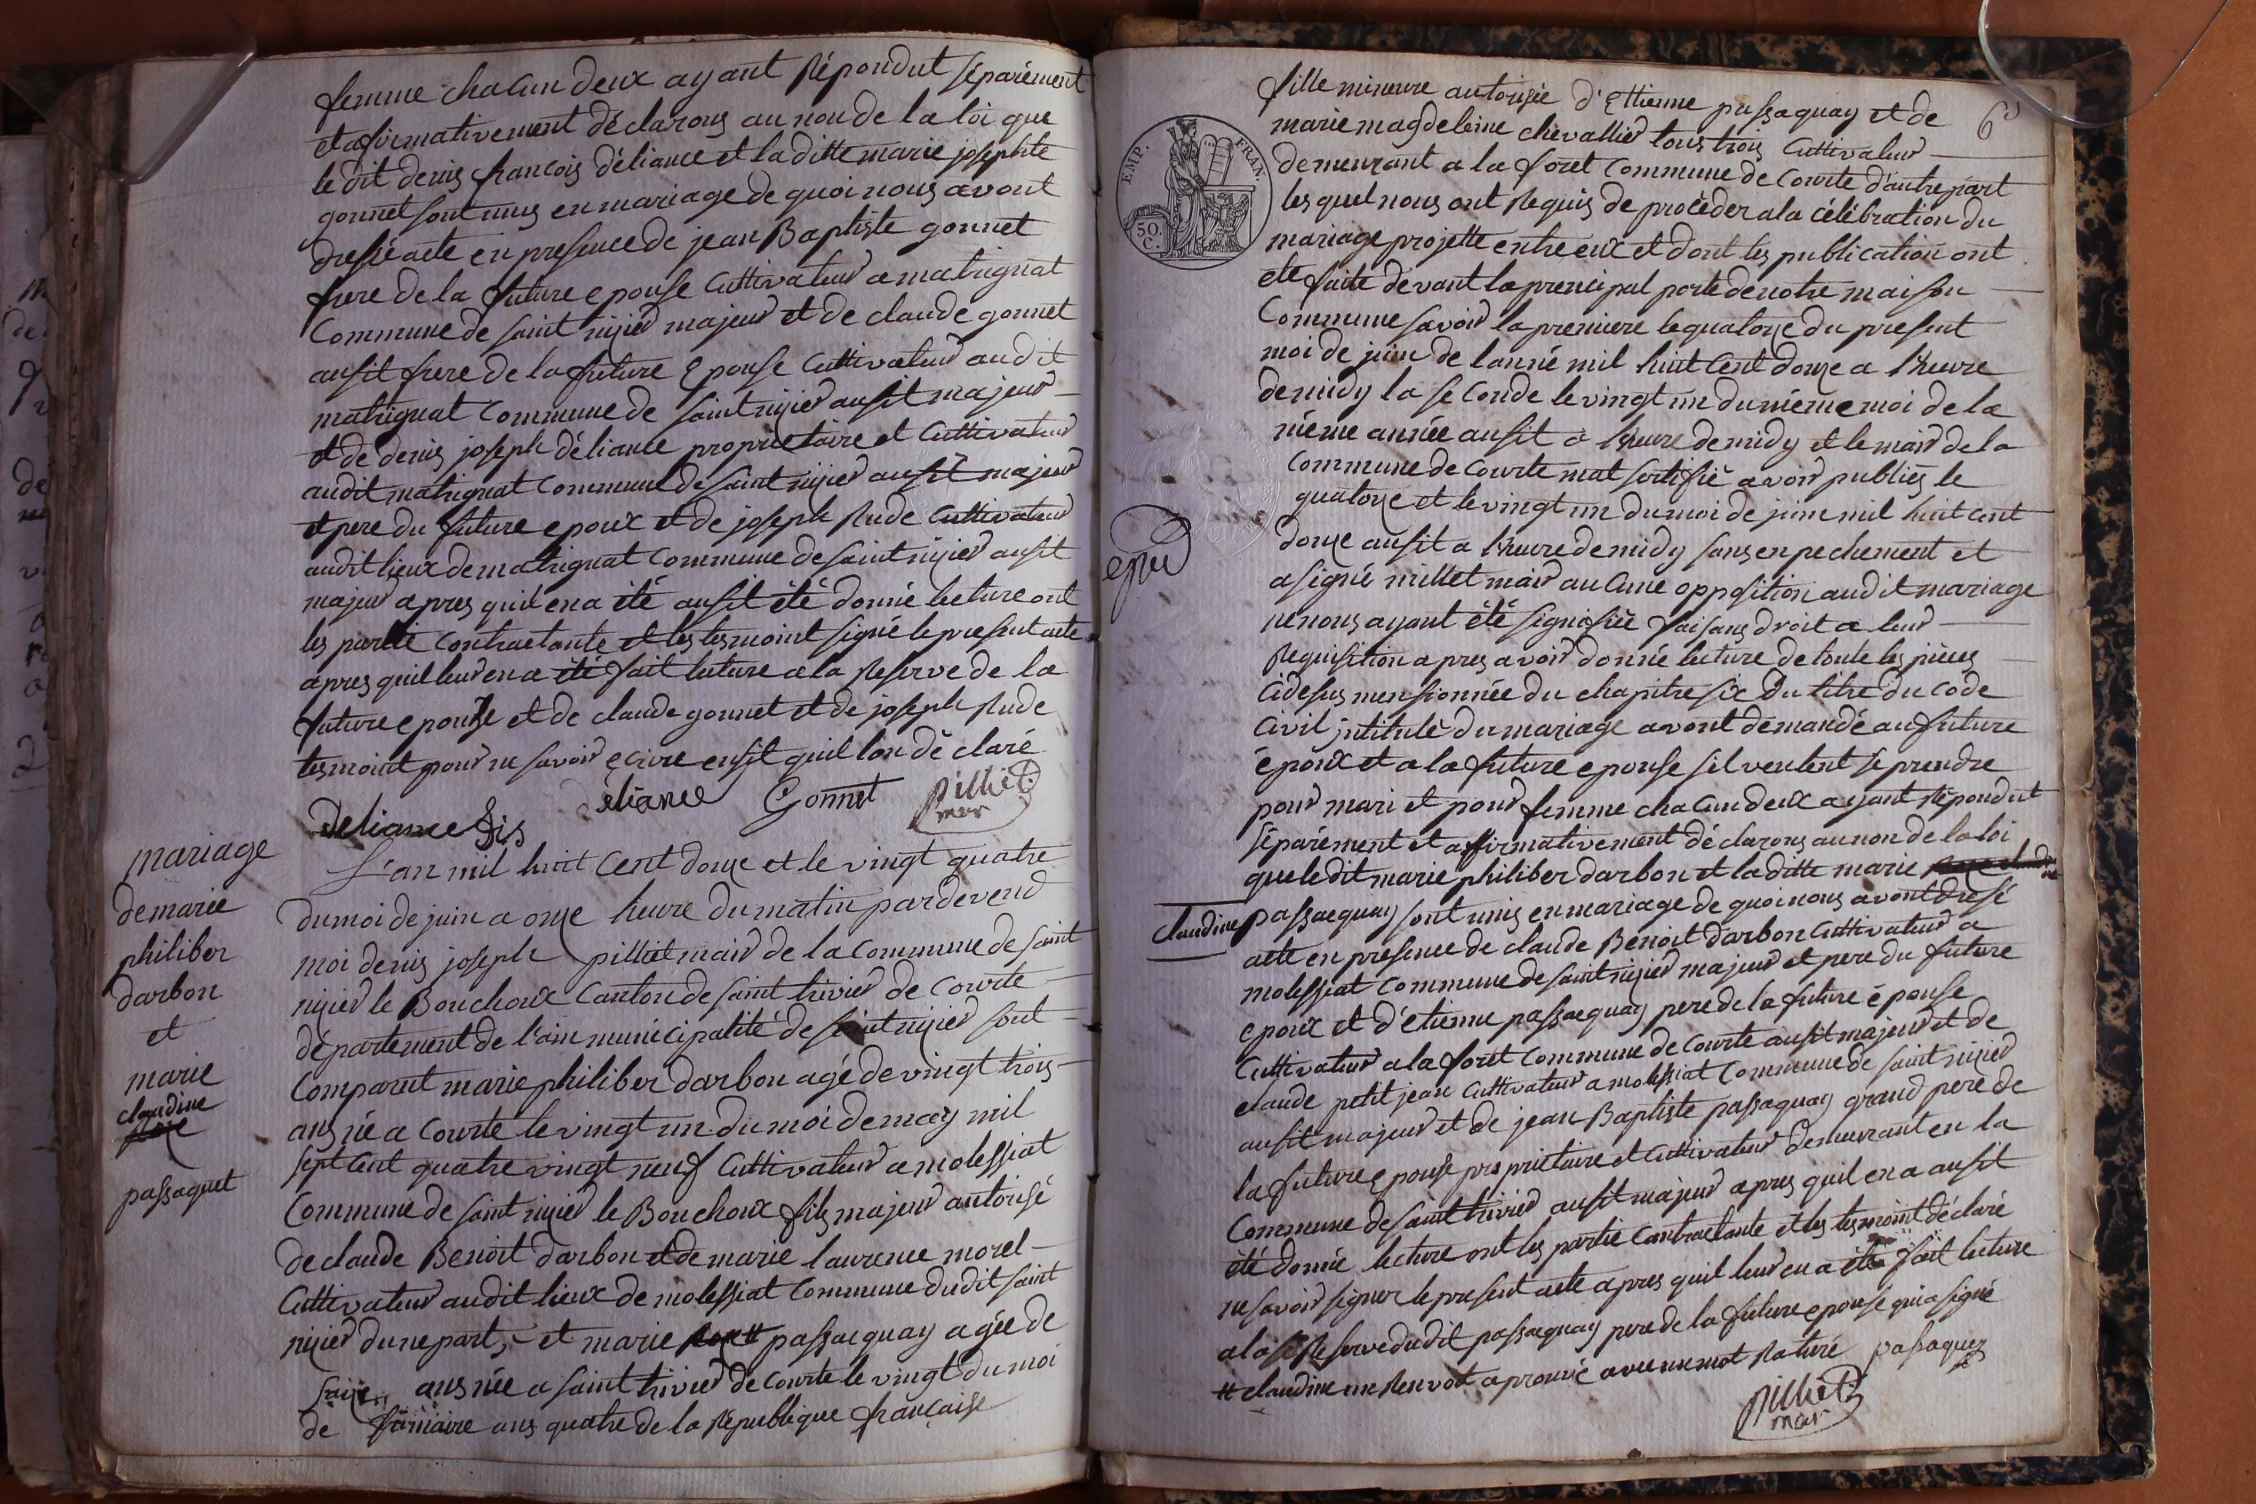 femme chacun deux ayant Répondut séparément
et afirmativement déclarons au non de la loi que
le dit denis françois déliance et la ditte marie josephte
gonnet sont unis en mariage de quoi nous avont
dressé acte en presence de jean Baptiste gonnet
frere de la future epouse Cultivateur a matrignat
Commune de saint nizier majeur et de claude gonnet
ausit frere de la future Epouse Cultivateur audit
matrignat Commune de saint nizier ausit majeur
et de denis joseph déliance proprietaire et Cultivateur
audit matrignat Commune de saint nizier ausit majeur
et pere du future epoux et de joseph Rude Cultivateur
audit lieux de matrignat Commune de saint nizier ausit
majeur apres quil en a été ausit été donné lecture ont
les partie Contractante et les tesmoint signé le present acte
apres quil leur en a été fait lecture a la Reserve de la
future epouse et de claude gonnet et de joseph Rude
tesmoint pour ne savoir ecrire ensit quil lon déclaré
Deliance fis déliance Gonnet pilliet
mair
mariage
de marie
philiber
darbon
et
marie
claudine
passaquet
L'an mil huit Cent douze et le vingt quatre
du moi de juin a onze heure du matin pardevend
moi denis joseph pilliet mair de la Commune de saint
nizier le Bouchoux Canton de saint trivier de Courte
département de l'ain municipalité de saint nizier sont
Comparut marie philiber darbon agé de vingt trois
ans né a Courte le vingt un du moi de may mil
sept Cent quatre vingt neuf Cultivateur a molessiat
Commune de saint nizier le Bouchoux fils majeur autorisé
de claude Benoit darbon et de marie laurence morel
Cultivateur audit lieux de molessiat Commune dudit saint
nizier dune part, et marie # passacquay agée de
saize ans née a saint trivier de Courte le vingt du moi
de frimaire ans quatre de la République française
60
EMP. FRAN.
50. C.
fille mineure autorisée d'Ettienne passaquay et de
marie magdeleine chevallier tous trois Cultivateur
demeurant a la foret Commune de Courte d'autre part
les quel nous ont Requis de procéder a la célébration du
mariage projetté entre eux et dont les publication ont
eté faite devant la prencipal porte de notre maison
Commune savoir la premiere le quatorze du present
moi de juin de lanné mil huit Cent douze a l'heure
de midy la seConde le vingt un du méme moi de la
méme année ausit a l'heure de midy et le mair de la
Commune de Courte mat sertifié avoir publiés le
quatorze et le vingt un du moi de juin mil huit cent
douze ausit a l'heure de midy sans enpechement et
a signé millet mair auCune opposition audit mariage
ne nous ayant été signifiée faisans droit a leur
Requisition apres avoir donné lecture de toute les pieces
Cidesus mensionnée du chapitre six du titre du Code
Civil intitulé du mariage avont demandé au future
époux et a la future epouse sil veulent se prendre
pour mari et pour femme chaCun deux ayant Répondut
séparément et affirmativement déclarons au non de la loi
que le dit marie philiber darbon et la ditte marie
claudine passacquay sont unis en mariage de quoi nous avont dresé
acte en presence de claude Benoit darbon Cultivateur a
molessiat Commune de saint nizier majeur et pere du future
epoux et d'etienne passacquay pere de la future épouse
Cultivateur a la foret Commune de Courte ausit majeur et de
claude petit jean Cultivateur a molessiat Commune de saint nizier
ausit majeur et de jean Baptiste passaquay grand pere de
la future epouse proprietaire et Cultivateur demeurant en la
Commune de saint trivier ausit majeur apres quil en a ausit
été donné lecture ont les partie Contractante et les tesmoint déclaré
ne savoir signer le present acte apres quil leur en a été fait lecture
a la Reserve dudit passaquay pere de la future epouse qui a signé
# claudine un Renvoit aprouvé avec un mot Raturé passaquay
pilliet
mair